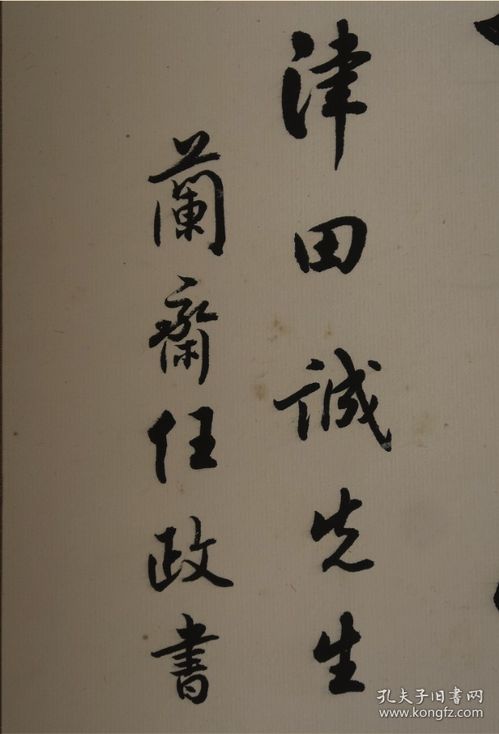 津田誠先生
蘭齋任政書
孔夫子旧书网
www.kongfz.com